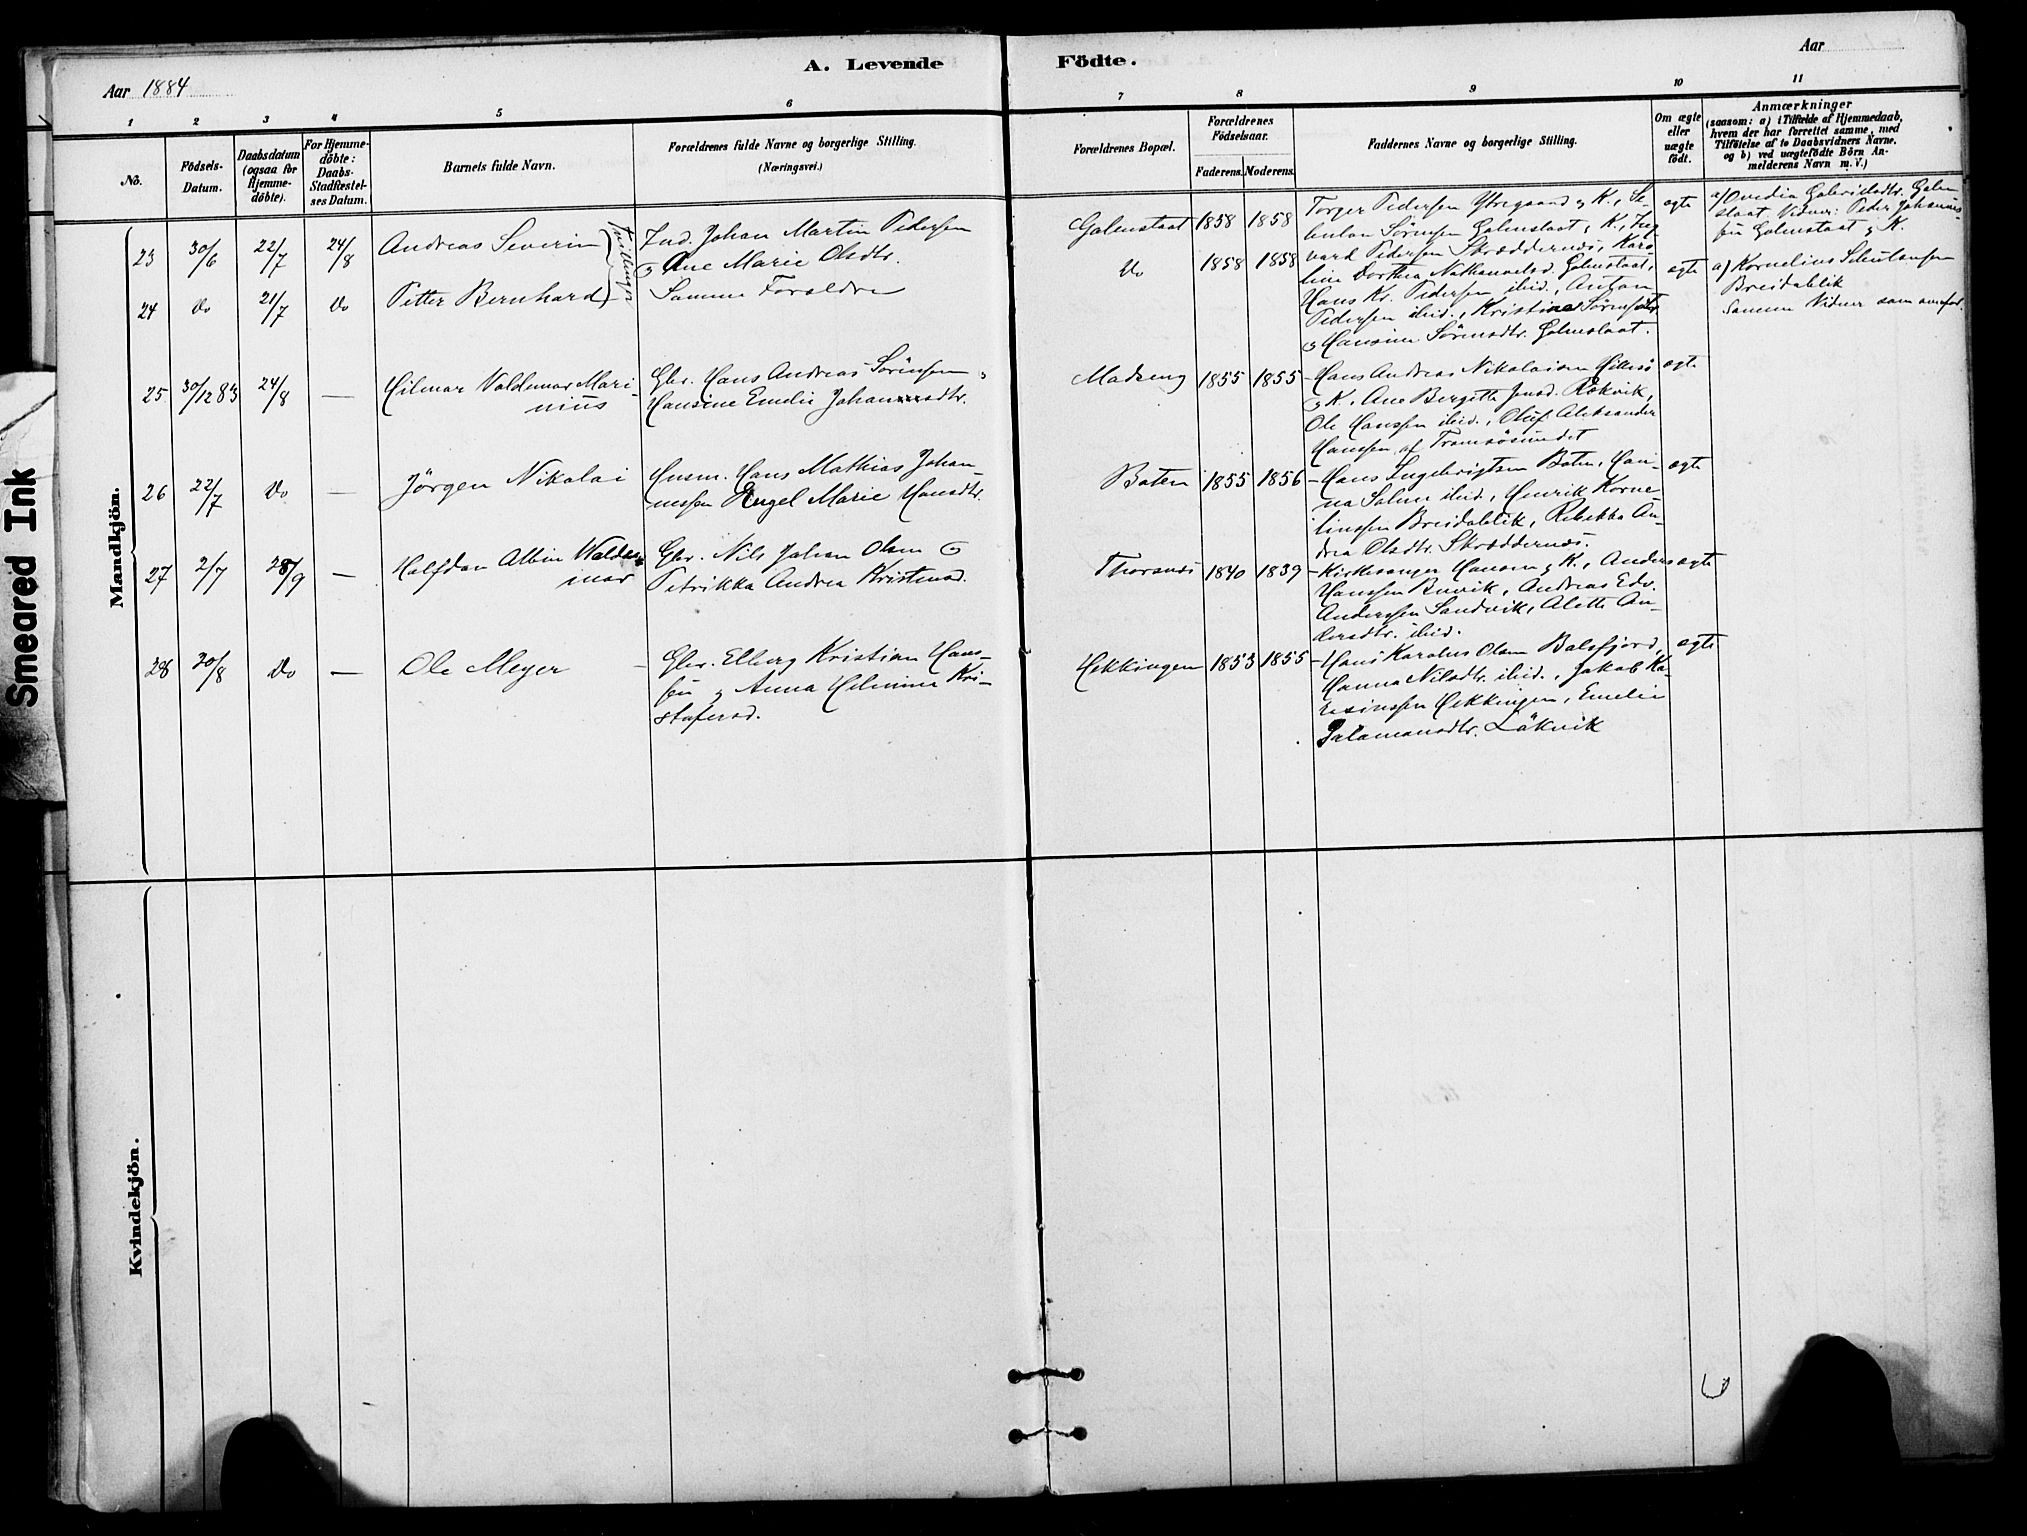 Aar 1884
A. Levende
Födte.
Aar
1 2 3 4 5 6 7 8 9 10 11
No.
Födsels-
Datum.
Daabsdatum
(ogsaa for
Hjemme-
döbte).
For Hjemme-
döbte:
Daabs-
Stadfæstel-
ses Datum.
Barnets fulde Navn.
Forældrenes fulde Navne og borgerlige Stilling.
(Næringsvei.)
Forældrenes Bopæl.
Forældrenes
Födselsaar.
Faderens. Moderens.
Faddernes Navne og borgerlige Stilling.
Om ægte
eller
uægte
födt.
Anmærkninger
(saasom: a) i Tilfælde af Hjemmedaab,
hvem der har forrettet samme, med
Tilföielse af to Daabsvidners Navne,
og b) ved uægtefödte Börn An-
melderens Navn m. V.)
Mandkjön.
23 30/6 22/7 24/8 Andreas Severin
Tvillinger
Ind. Johan Martin Pedersen
og Ane Marie Olsdtr.
Golmstaat 1858 1858
Torger Pedersen Ytregaard og K., Se-
Sörnsen Golmstaat, K., Ing-
vard Pedersen Skræddernæs, Karo
line Dorthea Golmstaat,
Hans Kr. Pedersen ibid., Anton
Pedersen ibid., Kristine Sörnsdtr.
og Hansine Sörnsdtr. Golmstaat.
ægte
a) Ovedia Golm
staat. Vidner: Peder Johannes
sen Golmstaat og K.
24 do 21/7 do Petter Bernhard
Samme Forældre
do 1858 1858
ægte
a) Kornelius
Breidablik
Samme Vidner som
25 30/12 83 24/8 — Hilmar Valdemar Mari-
nius
Gbr. Hans Andreas Sörensen og
Hansine Emelie Johannesdtr.
Madseng 1855 1855
Hans Andreas Nikolaisen Hillesö
og K., Ane Bergitte Jensd. Rökvik,
Ole Hanssen ibid., Oluf Aleksander
Hanssen af Tromsösundet
ægte
26 22/7 do — Jörgen Nikolai
Husm. Hans Mathias Johan-
nessen Engel Marie Hansdtr.
Boten 1855 1856
Hans Ingebrigtsen Boten, Han-
na ibid., Henrik Korne-
liussen Breidablik, Rebekka An-
drea Olsdtr. Skræddernæs.
ægte
27 2/7 28/9 — Halfdan Albin Walde-
mar
Gbr. Nils Johan Olsen og
Petrikka Andrea Kristensd.
Thorsnæs 1840 1839
Kirkesanger Hansen og K., Anders
Hanssen Buvik, Andreas Edv.
Anderssen Sandvik, Alette An-
dersdtr. ibid.
ægte
28 30/8 do — Ole Meyer
Gbr. Elberg Kristian Hans-
sen og Anna Helmine Kri-
stofersd.
Hekkingen 1853 1855
Hans Karolus Olsen Balsfjord,
Hanna Nilsdtr. ibid., Jakob Ka-
Hekkingen, Emelie
Salamonsdtr. Låkvik
ægte
Kvindekjön.
Smeared Ink